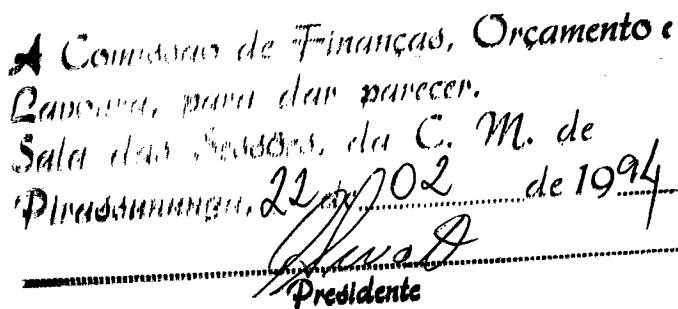 A Comissão de Finanças, Orçamento e
Lavoura, para dar parecer.
Sala das Sessões, da C. M. de
Pirassununga, 22 de 02 de 1994
Presidente